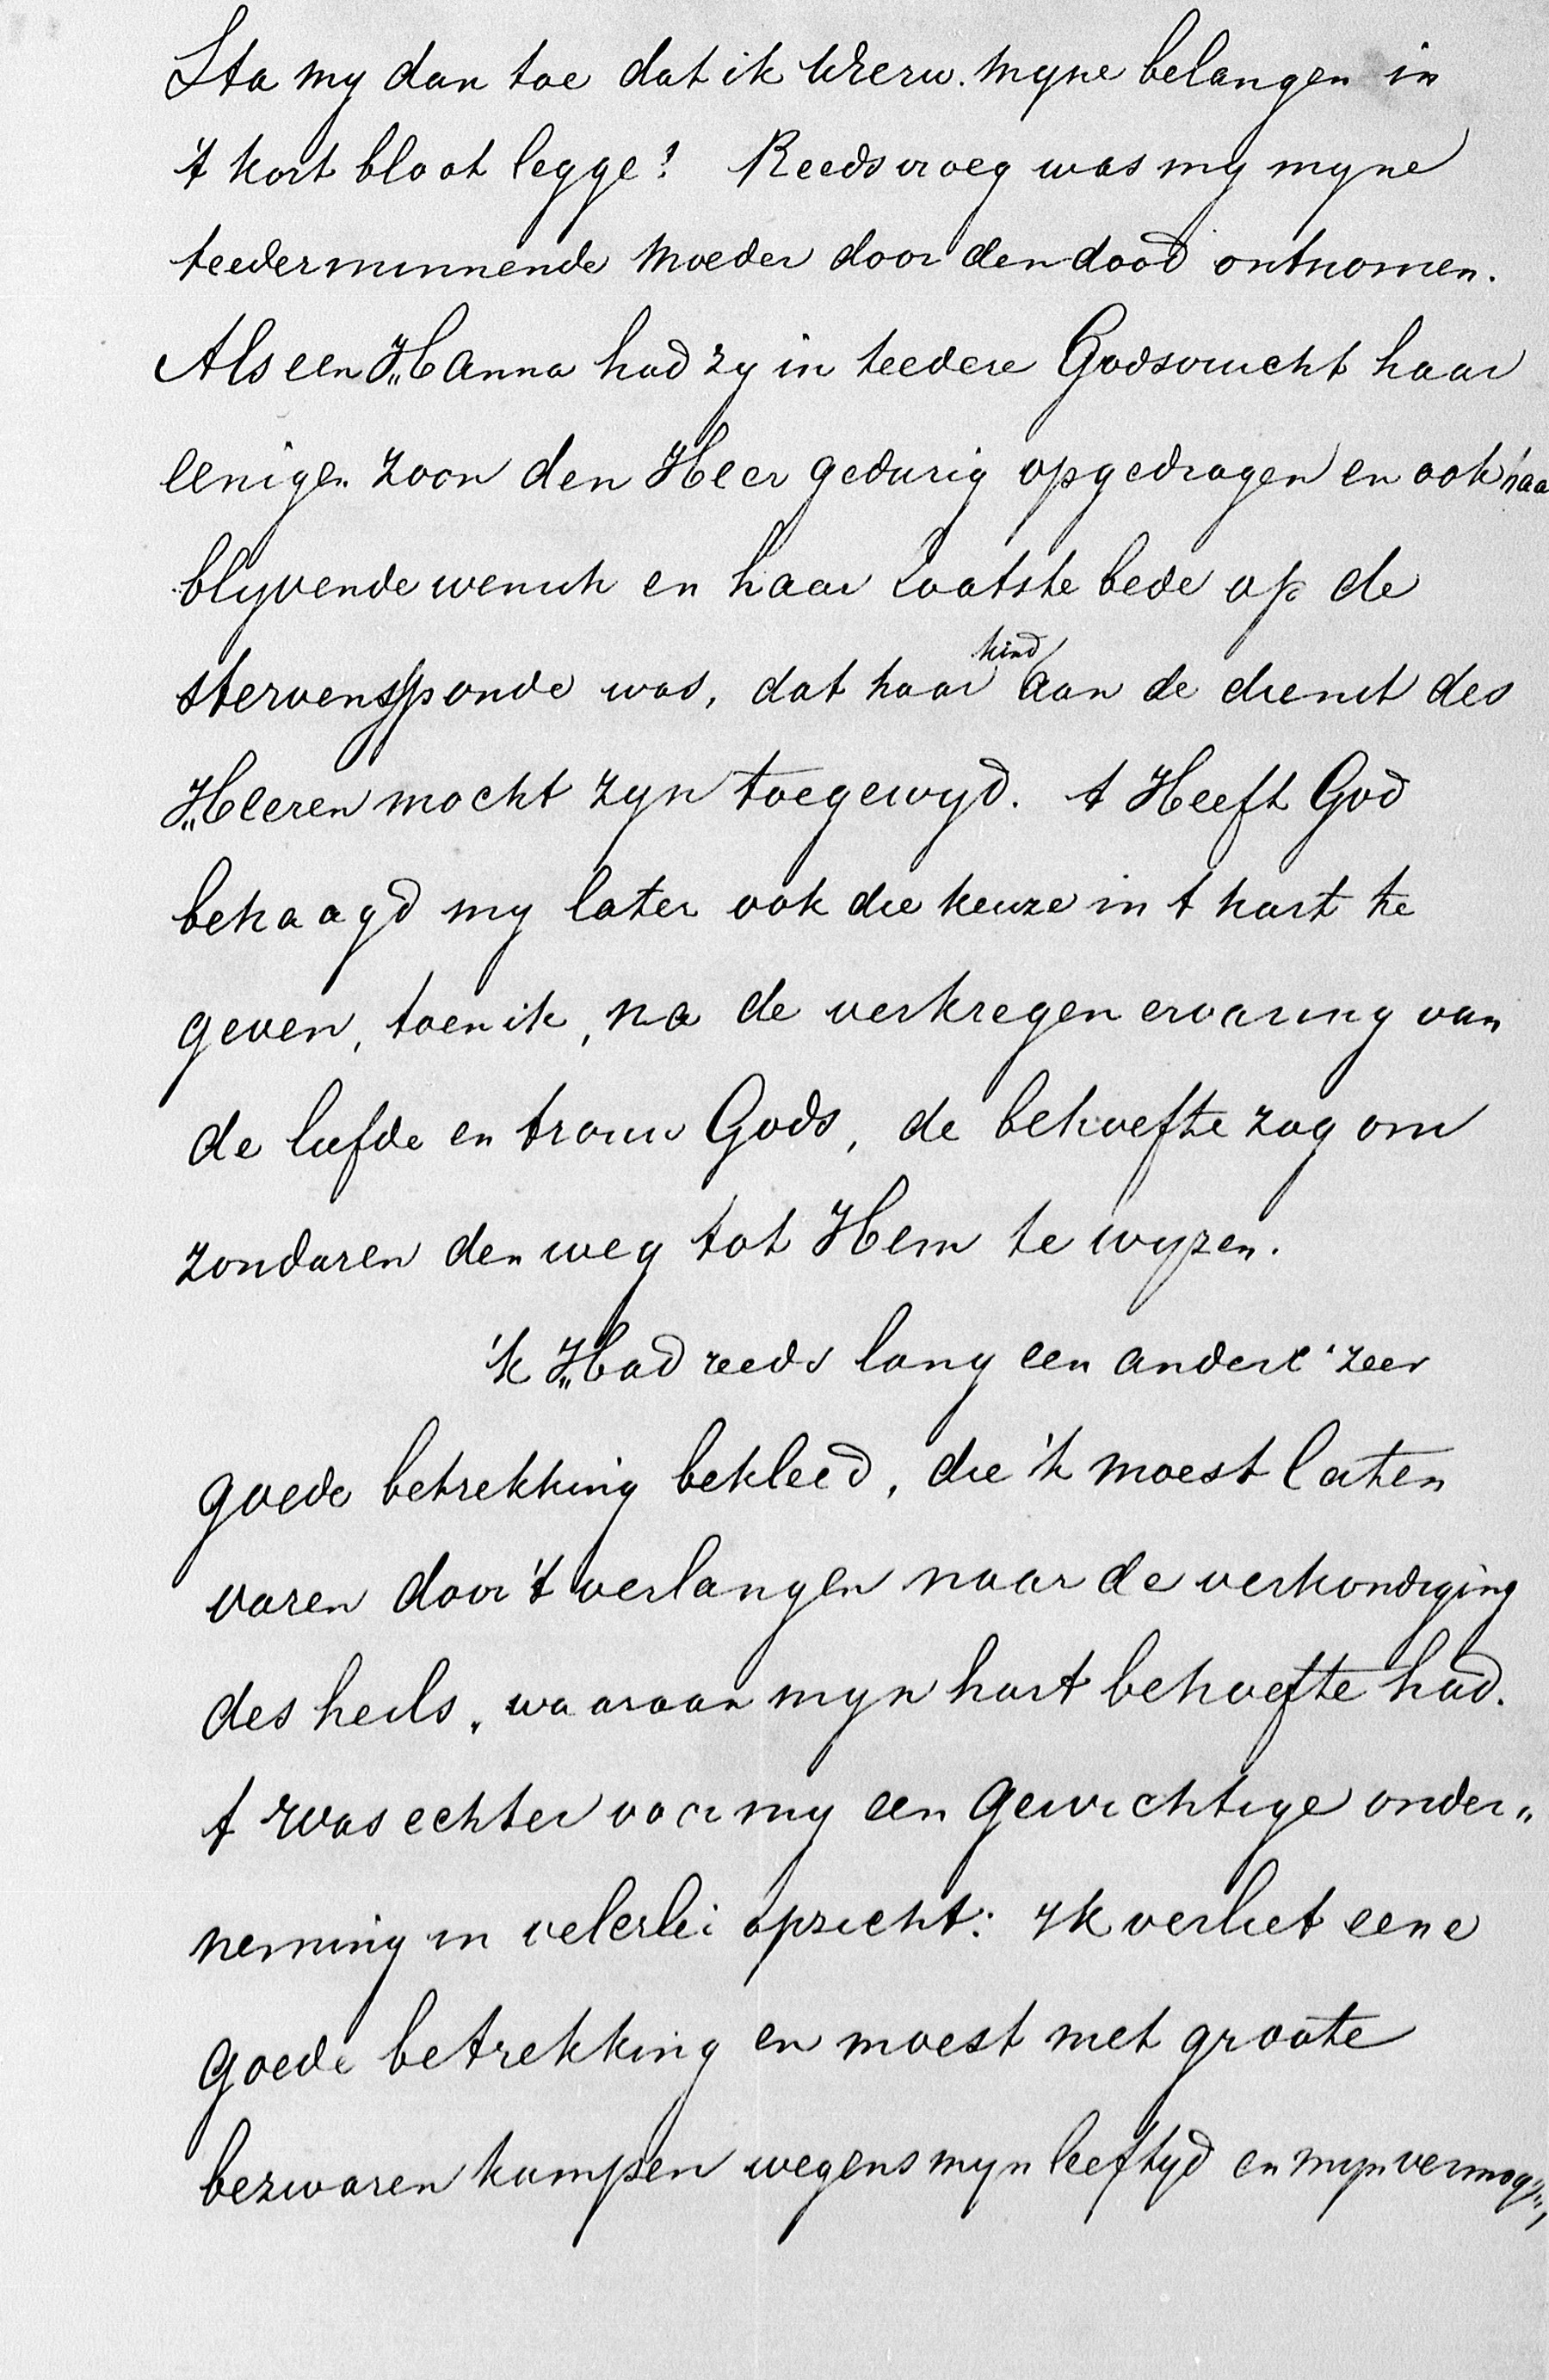 Sta my dan toe dat ik UEerw. myne belangen in
't kort bloot legge! Reeds vroeg was my myne
teederminnende moeder door den dood ontnomen.
Als een Hanna had zy in teedere Godsvrucht haar
eenigen zoon den Heer gedurig opgedragen en ook haa
blyvende wensch en haar laatste bede op de
stervenssponde was, dat haar kind aan de dienst des
Heeren mocht zyn toegewyd. t Heeft God
behaagd my later ook die keuze in t hart te
geven, toen ik, na de verkregen ervaring van
de liefde en trouw Gods, de behoefte zag om
zondaren den weg tot Hem te wyzen.
'k Had reeds lang een andere zeer
goede betrekking bekleed, die 'k moest laten
varen door 't verlangen naar de verkondiging
des heils, waaraan myn hart behoefte had.
t Was echter voor my een gewichtige onder„
neming in velerlei opzicht: Ik verliet eene
goede betrekking en moest met groote
bezwaren kampen wegens myn leeftyd en myn vermog„